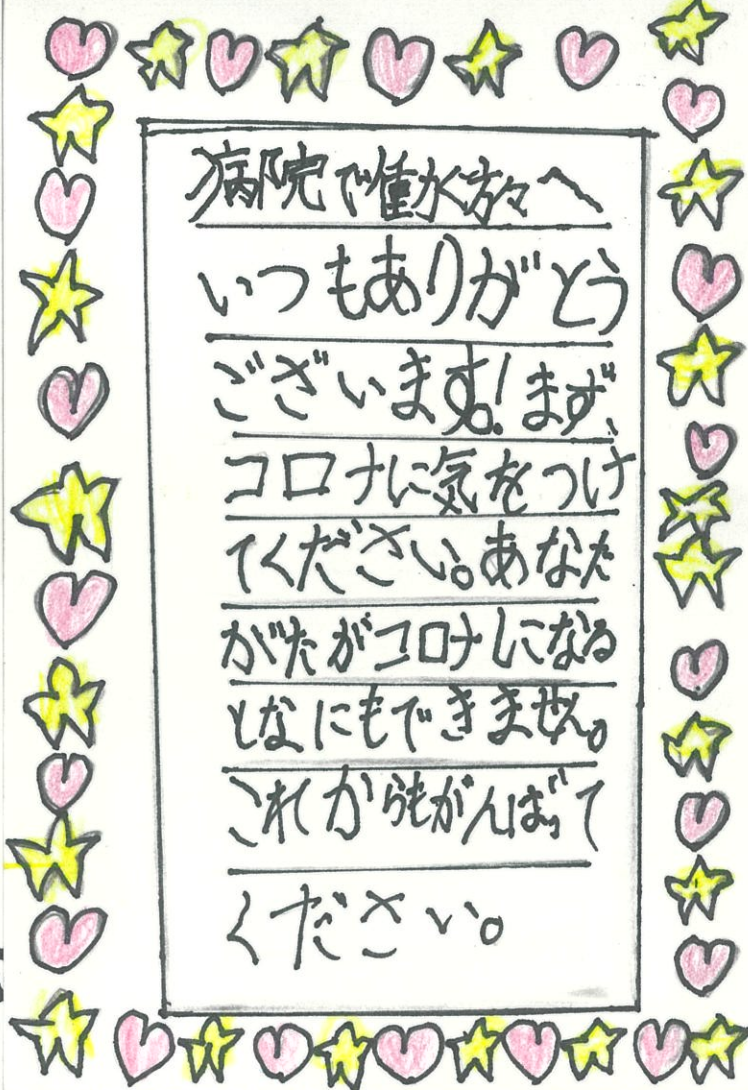 病院で働く方々へ
いつもありがとう
ございます!まず、
コロナに気をつけ
てください。あなた
がたがコロナになる
となにもできません。
これからもがんばって
ください。